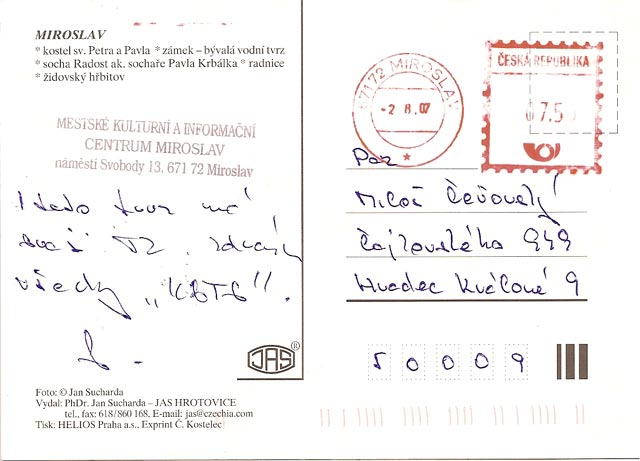 MIROSLAV
* kostel sv. Petra a Pavla * zámek – bývalá vodní tvrz
* socha Radost ak. sochaře Pavla Krbálka * radnice
* židovský hřbitov
MĚSTSKÉ KULTURNÍ A INFORMAČNÍ
CENTRUM MIROSLAV
náměstí Svobody 13, 671 72 Miroslav
má
všechny
JAS®
Foto: © Jan Sucharda
Vydal: PhDr. Jan Sucharda – JAS HROTOVICE
tel., fax: 618/860 168, E-mail: jas@czechia.com
Tisk: HELIOS Praha a.s., Exprint Č. Kostelec
67172 MIROSLAV
-2.8.07
ČESKÁ REPUBLIKA
7.5
Pan
Miloš
949
Hradec Králové 9
50009